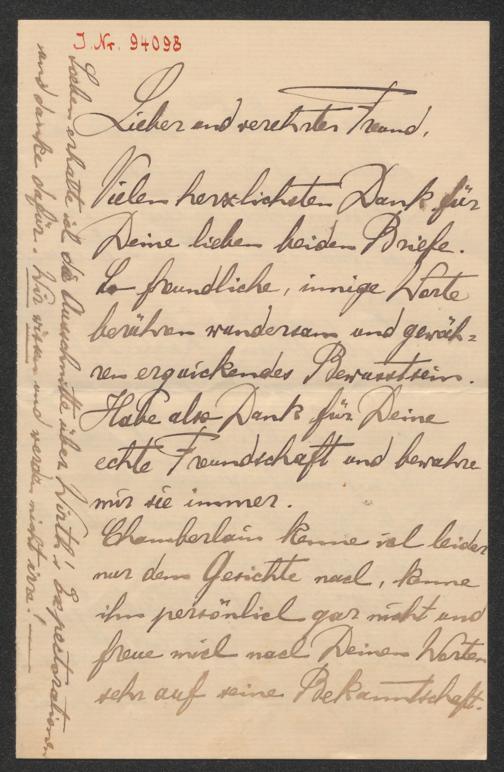 J. Nr. 94098
Lieber und verehrter Freund,
Vielen herzlichsten Dank für
Deine lieben beiden Briefe.
So freundliche, innige Worte
berühren wundersam und gewäh=
ren erquickendes Bewusstsein.
Habe also Dank für Deine
echte Freundschaft und bewahre
mir sie immer.
Chamberlain kenne ich leider
nur dem Gesichte nach, kenne
ihn persönlich gar nicht und
freue mich nach Deinen Worten
sehr auf seine Bekanntschaft.
Soeben erhalte ich die Ausschnitte über Wirth's Expectorationen
und danke dafür. Wir wissen und werden nicht irre!